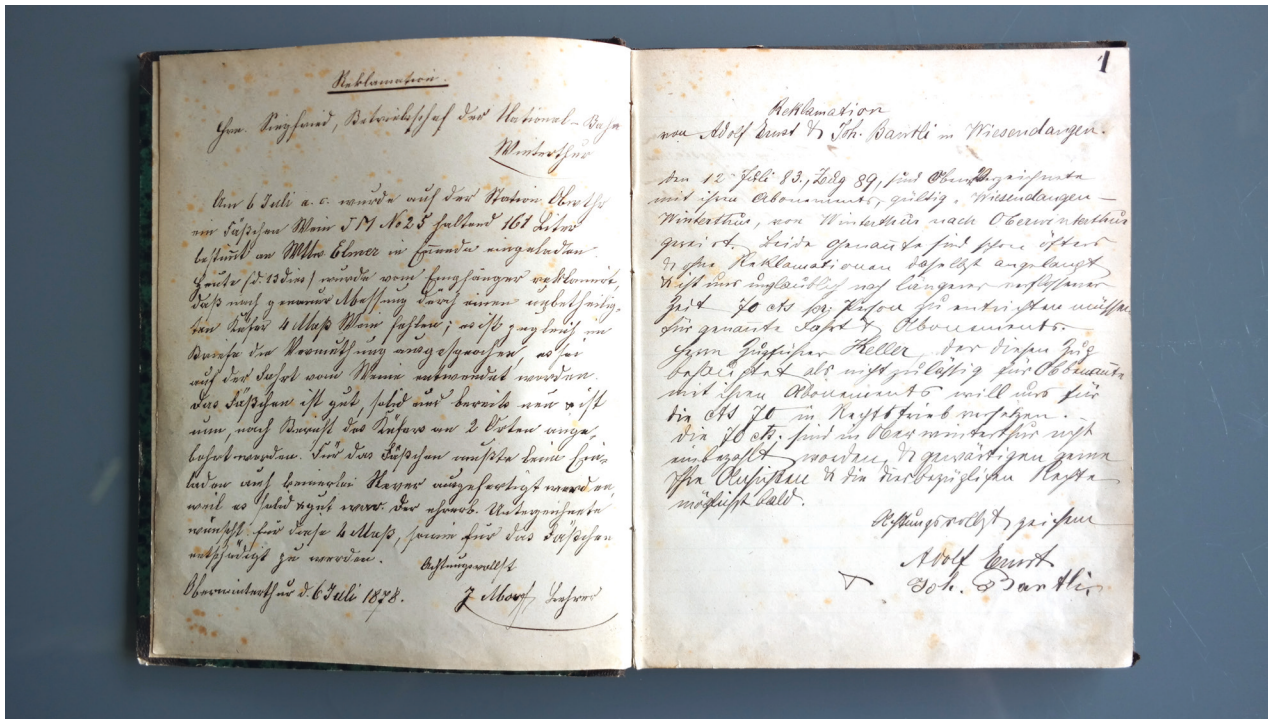 Reklamation.
Hrn. Siegfried, Betriebschef der National-Bahn
Winterthur
Am 6 Juli a. c. wurde auf der Station Ober Thr
ein Fäßchen Wein J M No 25 haltend 161 Liter
bestimt an Wttw Elmer in Ennenda eingeladen.
Heute (d. 13 dies) wurde vom Empfänger reklamirt,
daß nach genauer Abmessung durch einen unbetheilig-
ten Küfer 4 Maß Wein fehlen; es ist zugleich im
Briefe die Vermuthung ausgesprochen, es sei
auf der Fahrt vom Weine entwendet worden.
Das Fäßchen ist gut, solid und bereits neu & ist
nun, nach Bericht des Küfers an 2 Orten ange-
bohrt worden. Für das Fäßchen mußte beim Ein-
laden auch keinerlei Revers ausgefertigt werden,
weil es solid & gut war. Der ehrerb. Unterzeichnete
wünscht für diese 4 Maß, sowie für das Fäßchen
entschädigt zu werden.
Achtungsvollst
Oberwinterthur d. 6 Juli 1878.
J Morf Lehrer
1
Reklamation
von Adolf Ernst & Joh. Bantli in Wiesendangen.
Den 12 Juli 83., Zug 89, sind Obenbezeichnete
mit ihren Abonements, gültig, Wiesendangen-
Winterthur, von Winterthur nach Oberwinterthur
gereist, beide Genante sind schon öfters
& ohne Reklamationen daselbst angelangt
& ist uns unglaublich nach längerer verflossener
Zeit 70 cts pr Person zu entrichten müssen
für genante Fahrt & Abonements.
Herrn Zugführer Keller, der diesen Zug
behauptet als nicht zuläßig für Obbenante
mit ihren Abonements, will uns für
die cts 70 in Rechtstrieb versetzen.
Die 70 cts. sind in Oberwinterthur nicht
einbezahlt worden, & gewärtigen gerne
Ihre Ansichten & die diesbezüglichen Rechte
möglichst bald.
Achtungsvollst zeichnen
Adolf Ernst
Joh. Bantli